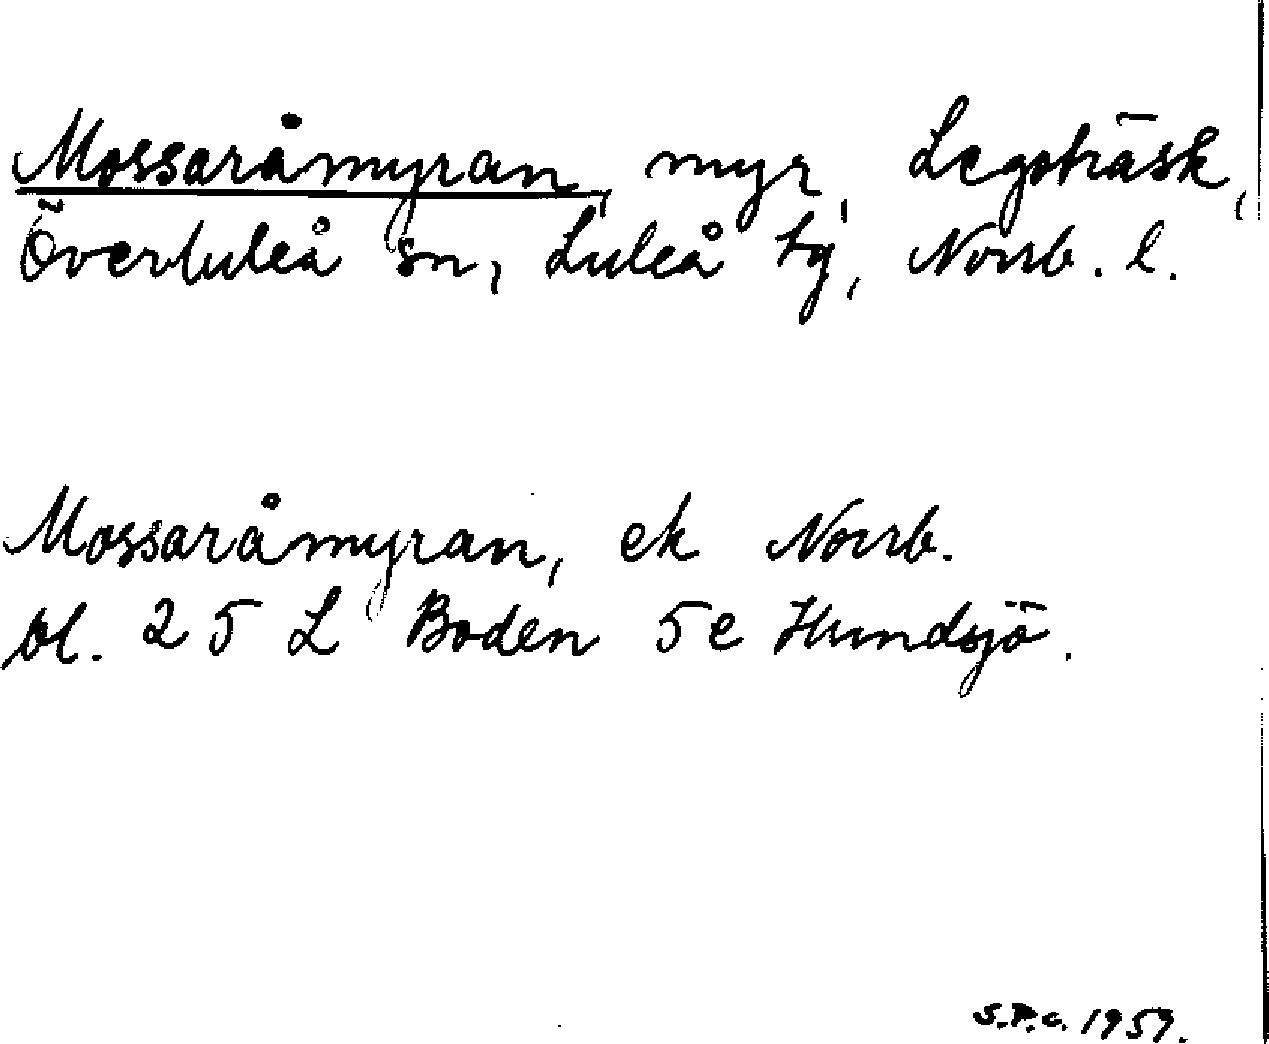 Mossaråmyran, myr, Legoträsk,
Överluleå sn, Luleå tg, Norrb. l.
Mossaråmyran, ek Norrb.
bl. 25 L Boden 5e Hundsjö.
S.P.C. 1959.